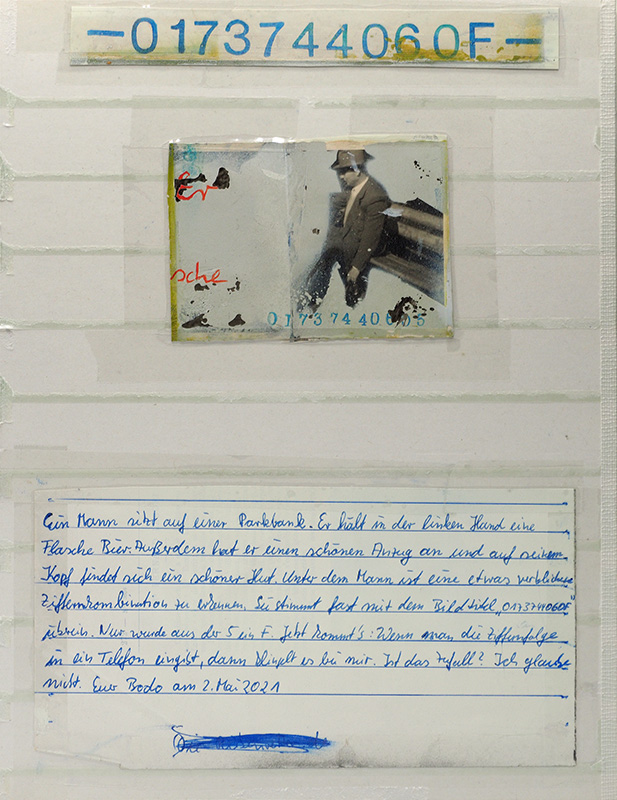 -0173744060F-
Er
sche
01737440605
Ein Mann sitzt auf einer Parkbank. Er hält in der linken Hand eine
Flasche Bier. Außerdem hat er einen schönen Anzug an und auf seinem
Kopf findet sich ein schöner Hut. Unter dem Mann ist eine etwas verblichene
Ziffernkombination zu erkennen. Sie stimmt fast mit dem Bildtitel „0173744060F"
überein. Nur wurde aus der 5 ein F. Jetzt kommt's: Wenn man die Ziffernfolge
in ein Telefon eingibt, dann klingelt es bei mir. Ist das Zufall? Ich glaube
nicht. Euer Bodo am 2. Mai 2021